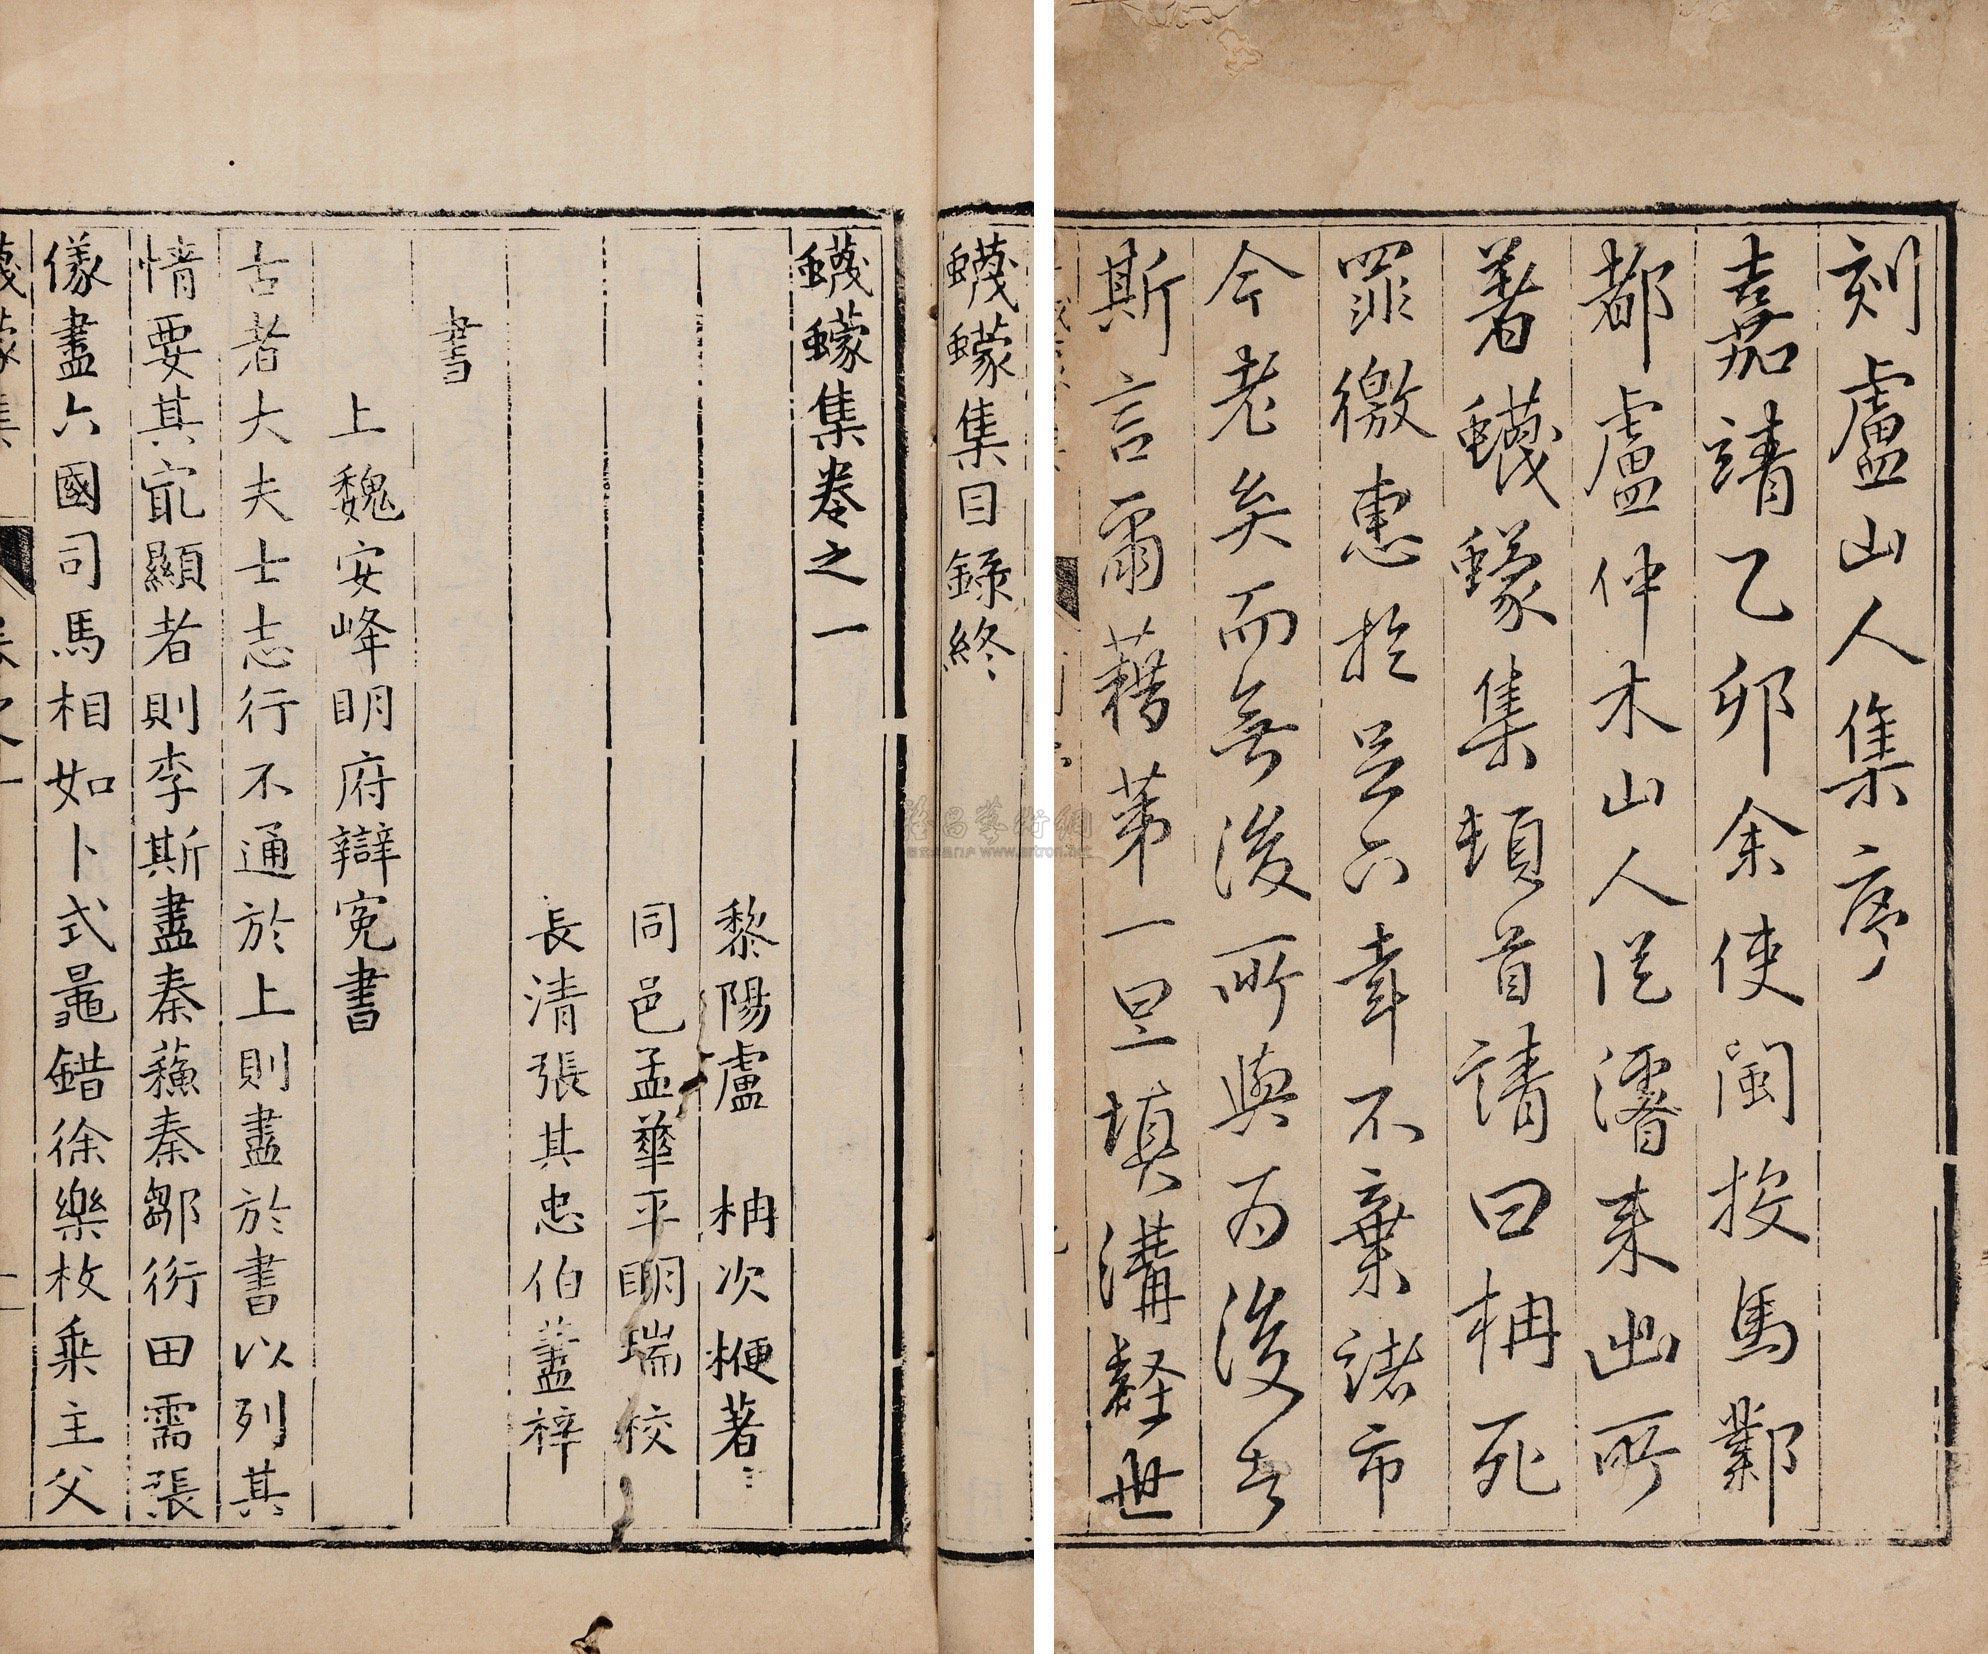 刻盧山人集序
嘉靖乙卯余使閩投馬鄴
都盧仲木山人從濬来出所
著蠛蠓集頓首請曰柟死
罪徼惠於足下幸不棄諸市
今老矣而無後所與为後者
斯言爾藉苐一旦填溝壑世
蠛蠓集目錄終
蠛蠓集卷之一
黎陽盧 柟次楩著
同邑孟華平明瑞校
長清張其忠伯藎梓
書
上魏安峰明府辯冤書
古者大夫士志行不通於上則盡於書以列其
情要其㝡顯者則李斯盡秦蘓秦鄒衍田需張
儀盡六國司馬相如卜式鼂錯徐樂枚乗主父